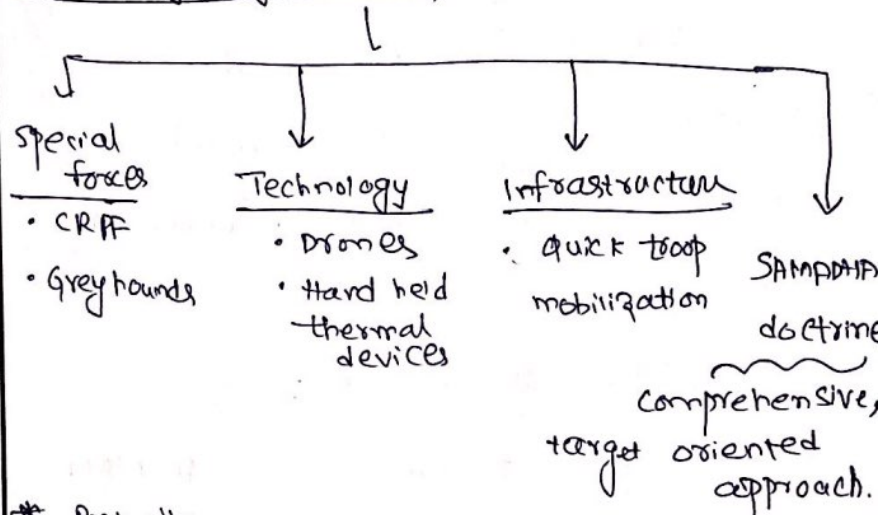 special
forces
• CRPF
• Greyhounds
Technology
• Drones
• Hand held
thermal
devices
Infrastructure
• Quick troop
mobilization
SAMADHAN
doctrine
comprehensive,
target oriented
approach.